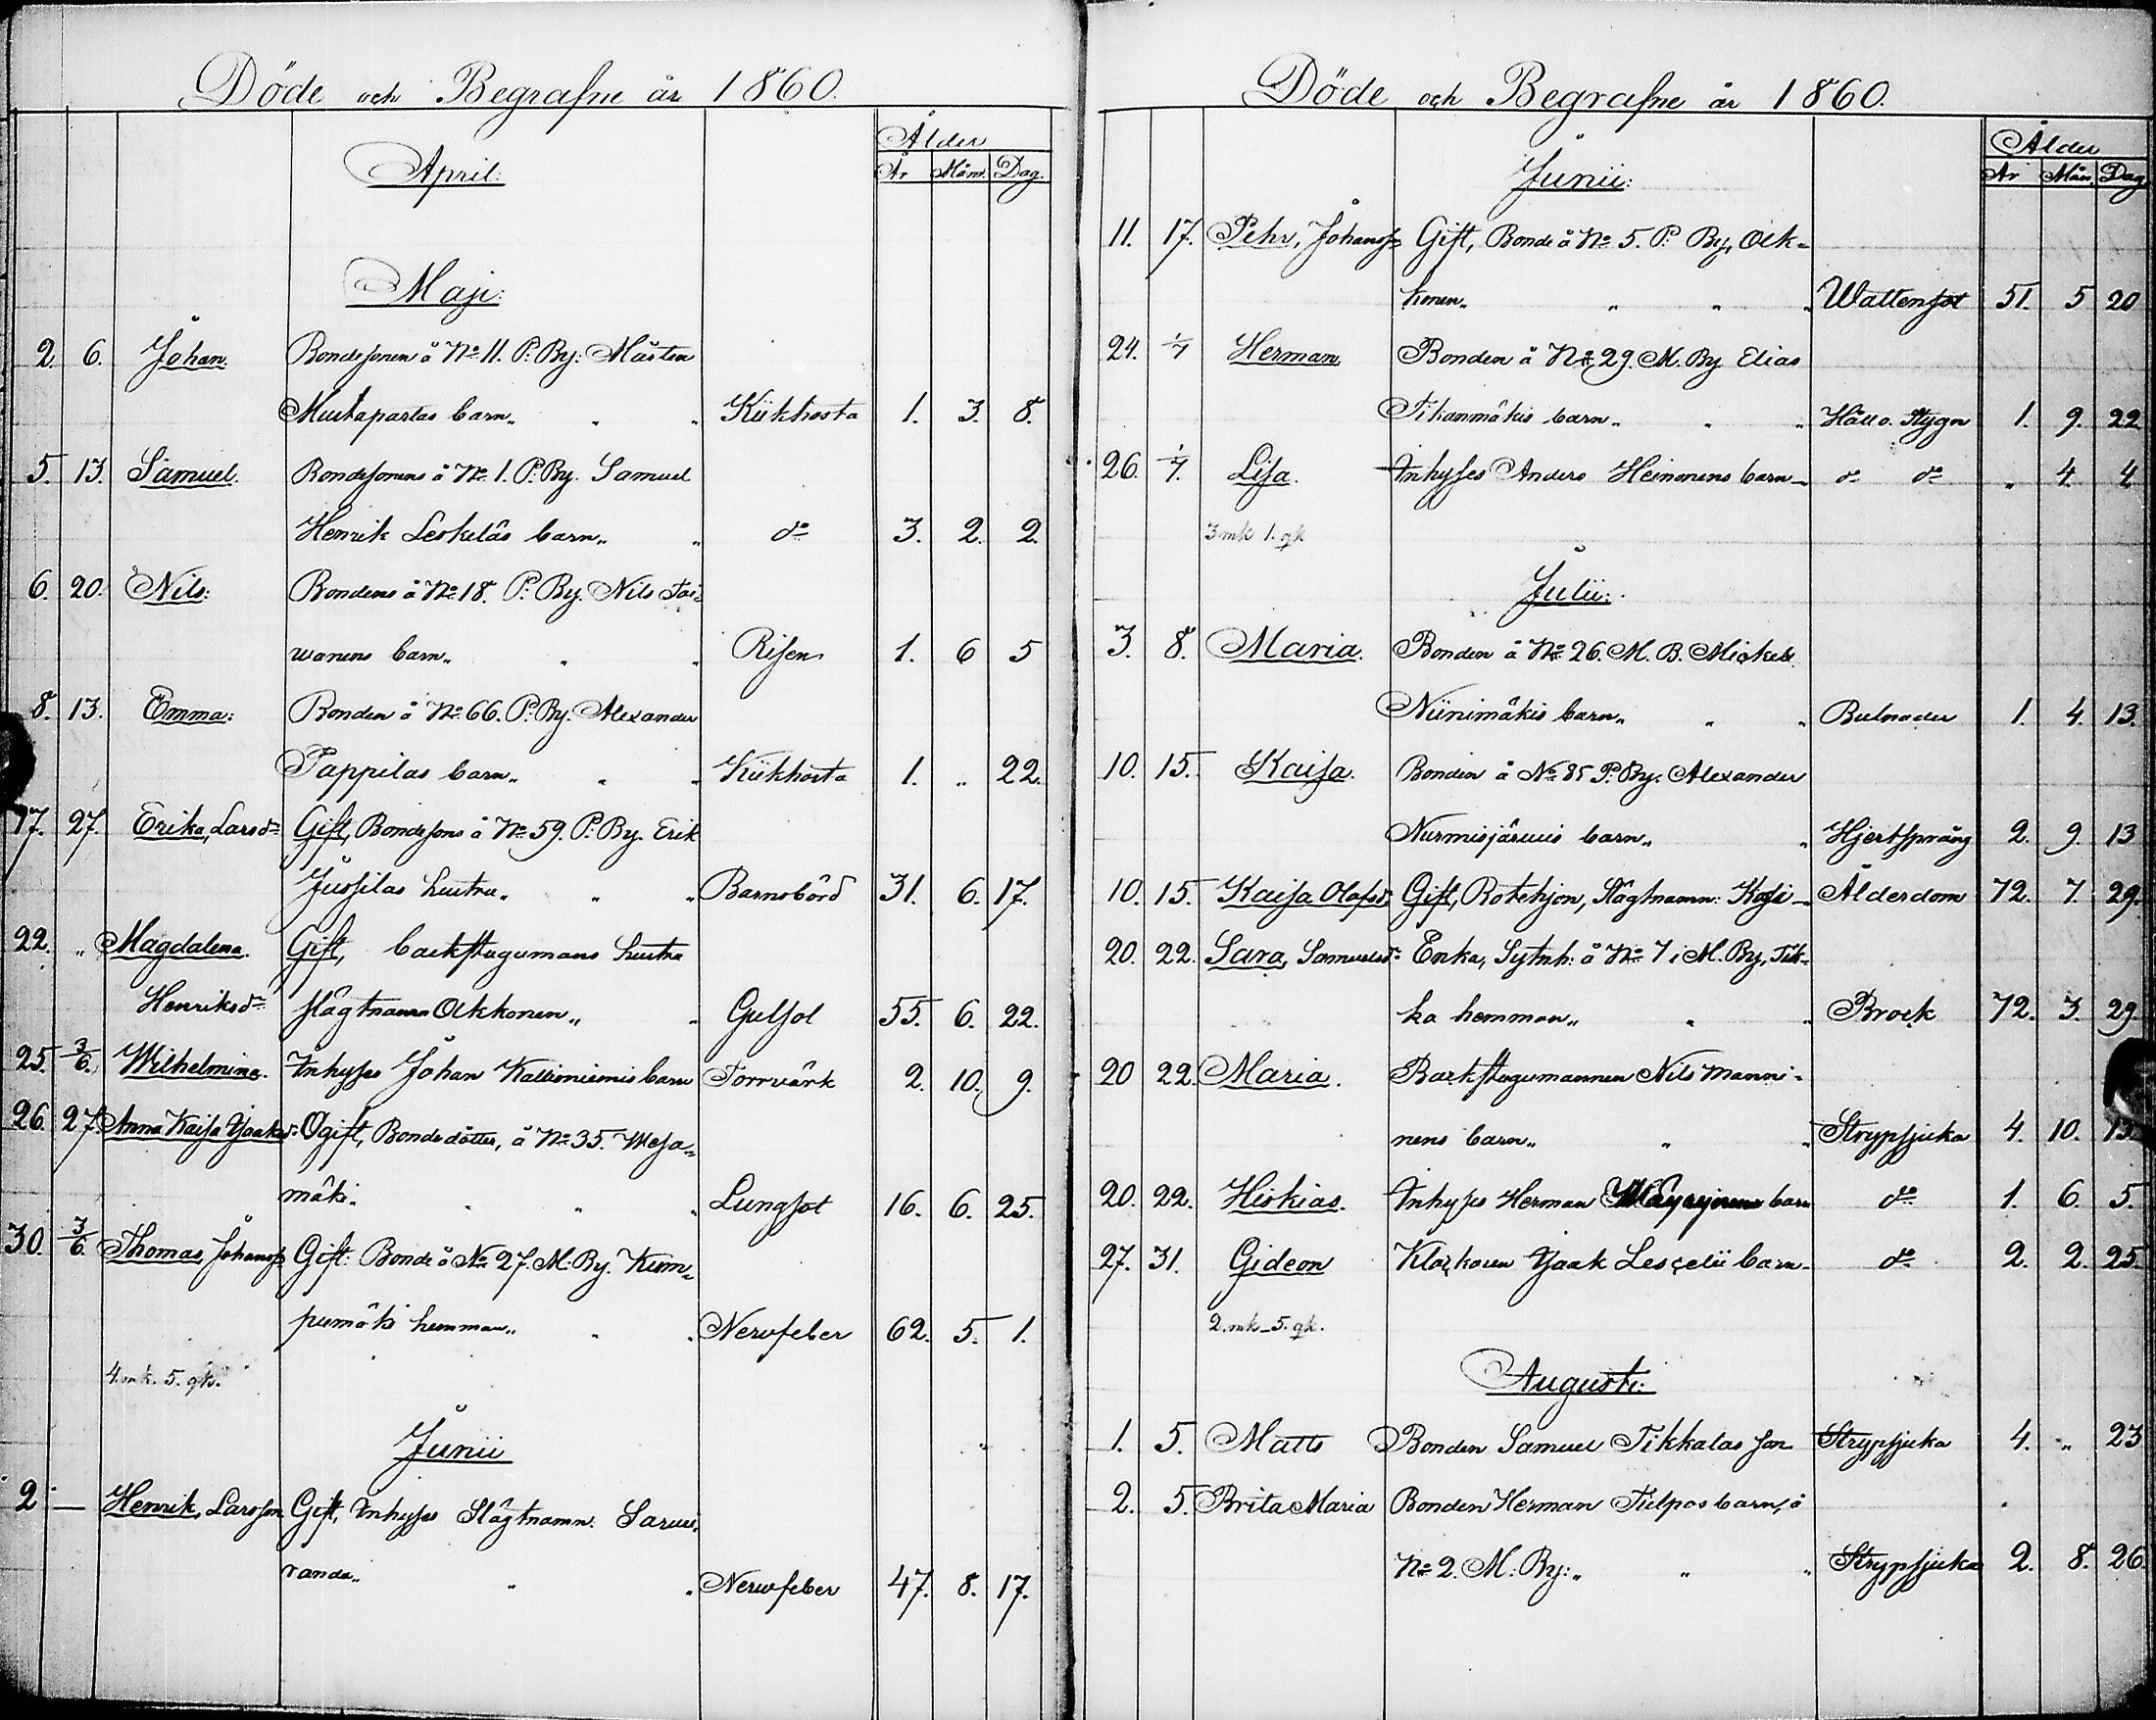 Döde och Begrafne år 1860.
Ålder
April:
År Mån. Dag.
Maji:
2. 6. Johan. Bondesonen å No 11. P. By: Mårten
Mustapartas barn „ „ „ Kikhosta 1. 3. 8.
5. 13. Samuel. Bondesonens å No 1. P. By. Samuel
Henrik Leskeläs barn „ „ do 3. 2. 2.
6. 20. Nils: Bondens å No 18. P. By. Nils Toi-
wanens barn „ „ „ Risen 1. 6 5
8. 13. Emma: Bonden å No 66. P. By. Alexander
Pappilas barn „ „ „ Kikhosta 1. „ 22.
17. 27. Erika, Larsdr Gift, Bondesons å No 59. P. By. Erik
Jussilas hustru „ „ „ Barnsbörd 31. 6. 17.
22. „ Magdalena. Gift, backstugumans hustru
Henriksdr slägtnamn Okkonen „ „ Gulsot 55. 6. 22.
25. 3/6. Wilhelmina. Inhyses Johan Kallioniemis barn Torrvärk 2. 10. 9.
26. 27. Anna Kaisa Isaksdr Ogift, Bondedotter, å No 35. Mesa-
mäki „ „ „ Lungsot 16. 6. 25.
30. 3/6. Thomas Johanss: Gift: Bonde å No 27. M. By. Kum-
pumäki hemman „ „ „ Nervfeber 62. 5. 1.
4. mk. 5. qk.
Junii
2 — Henrik, Larsson Gift, Inhyses Slägtnamn. Sarvi-
randa „ „ „ Nervfeber 47. 8. 17.
Döde och Begrafne år 1860.
Ålder
Junii:
År Mån. Dag
11. 17. Pehr, Johanss: Gift, Bonde å No 5. P. By, Ock-
konen „ „ „ Wattensot 51. 5 20
24. 1/7 Herman Bonden å No 29. M. By Elias
Tikanmäkis barn „ „ „ Håll o. Stygn 1. 9. 22
26. 1/7. Lisa. Inhyses Anders Heinonens barn do do „ 4. 4
3 mk 1. qk
Julii:
3. 8. Maria. Bonden å No 26. M. B. Mickel
Niinimäkis barn „ „ „ Bulnader 1. 4. 13.
10. 15. Kaisa. Bonden å No 85 P. By. Alexander
Nurmisjärwis barn „ „ Hjertsprång 2. 9. 13
10. 15. Kaisa Olofsdr Gift, Rotehjon, Slägtnamn: Kosi Ålderdom 72. 7. 29.
20. 22. Sara, Samuelsdr Enka, Sytnh: å No 7 i M. By, Tik-
ka hemman „ „ „ Brock 72. 3. 29
20 22. Maria. Backstugumannen Nils Manni-
nens barn „ „ „ Strypsjuka 4. 10. 13.
20. 22. Hiskias. Inhyses Herman Mäyryinens barn do 1. 6. 5.
27. 31. Gideon Klockaren Isaak Lesçelii barn do 2. 2. 25.
2. mk 5. qk.
Augusti:
1. 5. Matts Bonden Samuel Tikkalas son Strypsjuka 4. „ 23
2. 5. Brita Maria Bonden Herman Tulpos barn, å
No 2. M. By: „ „ „ Strypsjuka 2. 8. 26.